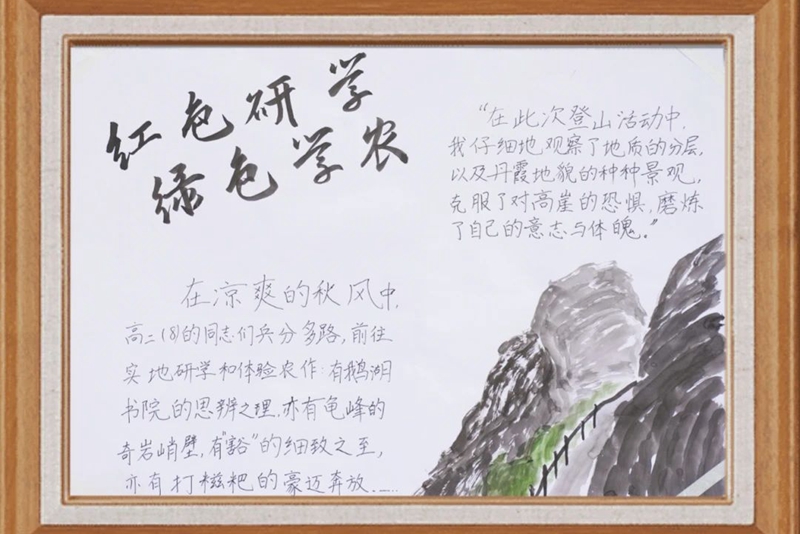 红色研学
绿色学农
"在此次登山活动中,
我仔细地观察了地质的分层,
以及丹霞地貌的种种景观,
克服了对高崖的恐惧,磨炼
了自己的意志与体魄。"
在凉爽的秋风中,
高二(8)的同志们兵分多路,前往
实地研学和体验农作:有鹅湖
书院的思辨之理,亦有龟峰的
奇岩峭壁,有"豁"的细致之至,
亦有打糍粑的豪迈奔放……